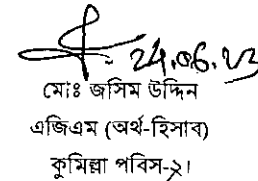 24.06.23
মোঃ জসিম উদ্দিন
এজিএম (অর্থ-হিসাব)
কুমিল্লা পবিস-২।